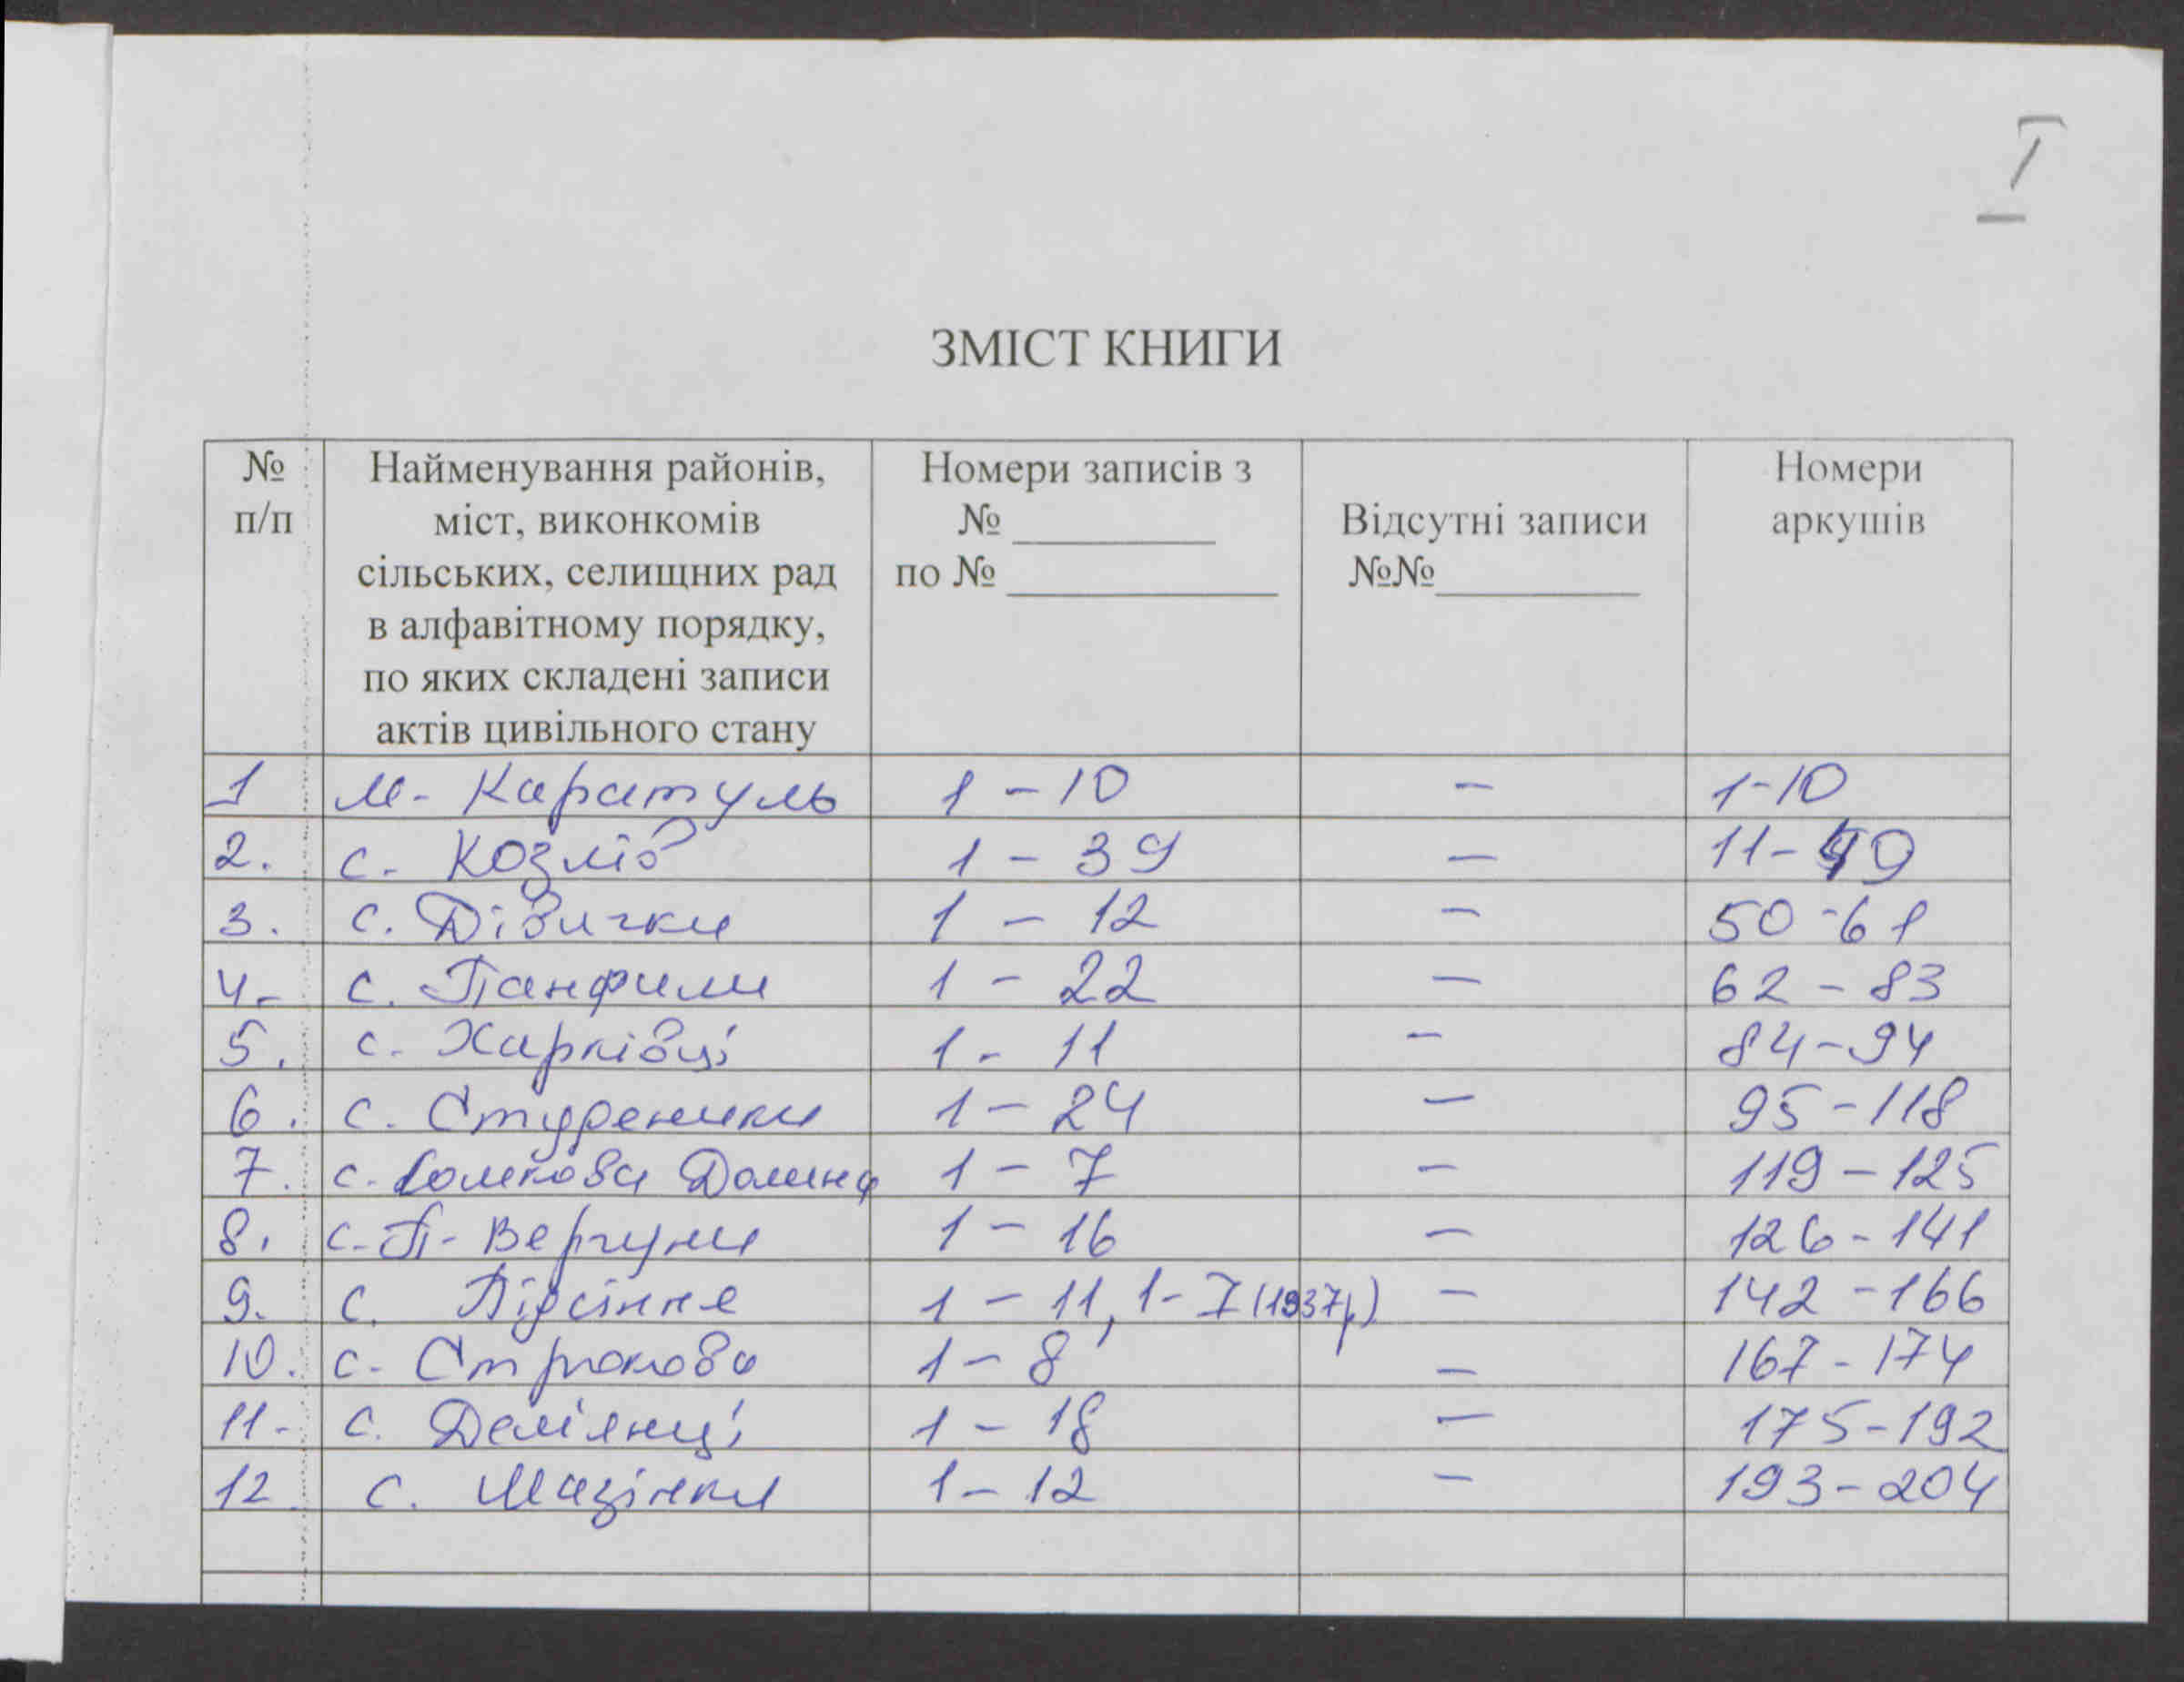 I
ЗМІСТ КНИГИ
№ п/п
Найменування районів,
міст, виконкомів
сільських, селищних рад
в алфавітному порядку,
по яких складені записи
актів цивільного стану
Номери записів з
№ ____________
по № ________________
Відсутні записи
№№____________
Номери
аркушів
1 м- Каратуль 1 - 10 - 1-10
2. с. Козлів 1 - 39 - 11-49
3. с. Дівички 1 - 12 - 50-61
4. с. Панфили 1 - 22 - 62 - 83
5. с. Харківці 1 - 11 - 84-94
6. с. Студеники 1 - 24 - 95-118
7. с. Сомкова Долина 1 - 7 - 119 - 125
8. с. П- Вергуни 1 - 16 - 126 - 141
9. с. Підсінне 1 - 11, 1-7 (1937р) - 142 - 166
10. с. Строкова 1 - 8 - 167 - 174
11. с. Дем'янці 1 - 18 - 175-192
12 с. Мазінки 1 - 12 - 193-204